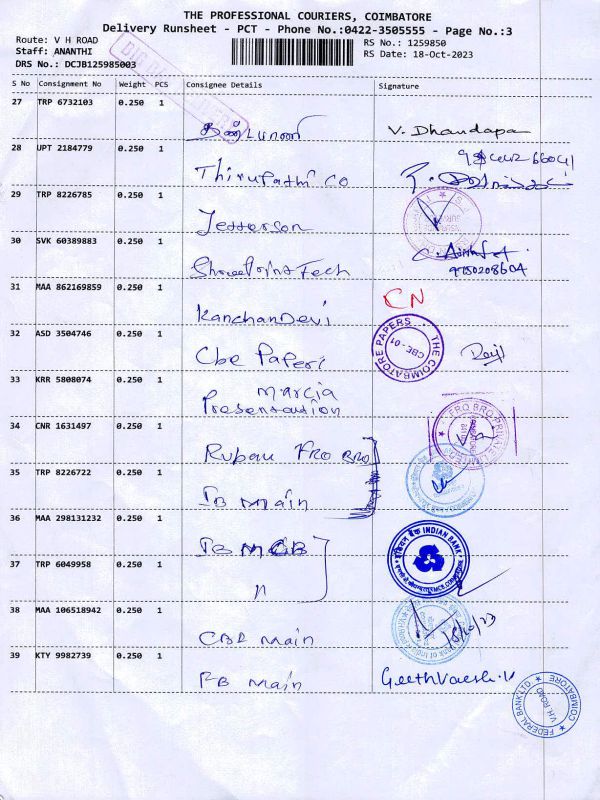 THE PROFESSIONAL COURIERS, COIMBATORE
Delivery Runsheet - PCT - Phone No.:0422-3505555 - Page No.:3
Route: V H ROAD
RS No.: 1259850
Staff: ANANTHI
RS Date: 18-Oct-2023
DRS No.: DCJB125985003
S No Consignment No Weight PCS Consignee Details Signature
27 TRP 6732103 0.250 1
V. Dhandapa
28 UPT 2184779 0.250 1
Thirupathi Co
29 TRP 8226785 0.250 1
Jefferson
30 SVK 60389883 0.250 1
Shree Print Tech
9750208604
31 MAA 862169859 0.250 1
CN
Kanchan Devi
32 ASD 3504746 0.250 1
THE COIMBATORE PAPERS
CBE-01
Cbe Papers
33 KRR 5808074 0.250 1
Marcia
Presentation
34 CNR 1631497 0.250 1
FRO BRO PRIVATE
Ruban FRO BRO
35 TRP 8226722 0.250 1
IB Main
36 MAA 298131232 0.250 1
इंडियन बैंक INDIAN BANK
IB MCB
37 TRP 6049958 0.250 1
"
38 MAA 106518942 0.250 1
Bank of India
18/10/23
CBE Main
39 KTY 9982739 0.250 1
FB Main
Geethvarshi.V
FEDERAL BANK LTD
V.H. ROAD
COIMBATORE